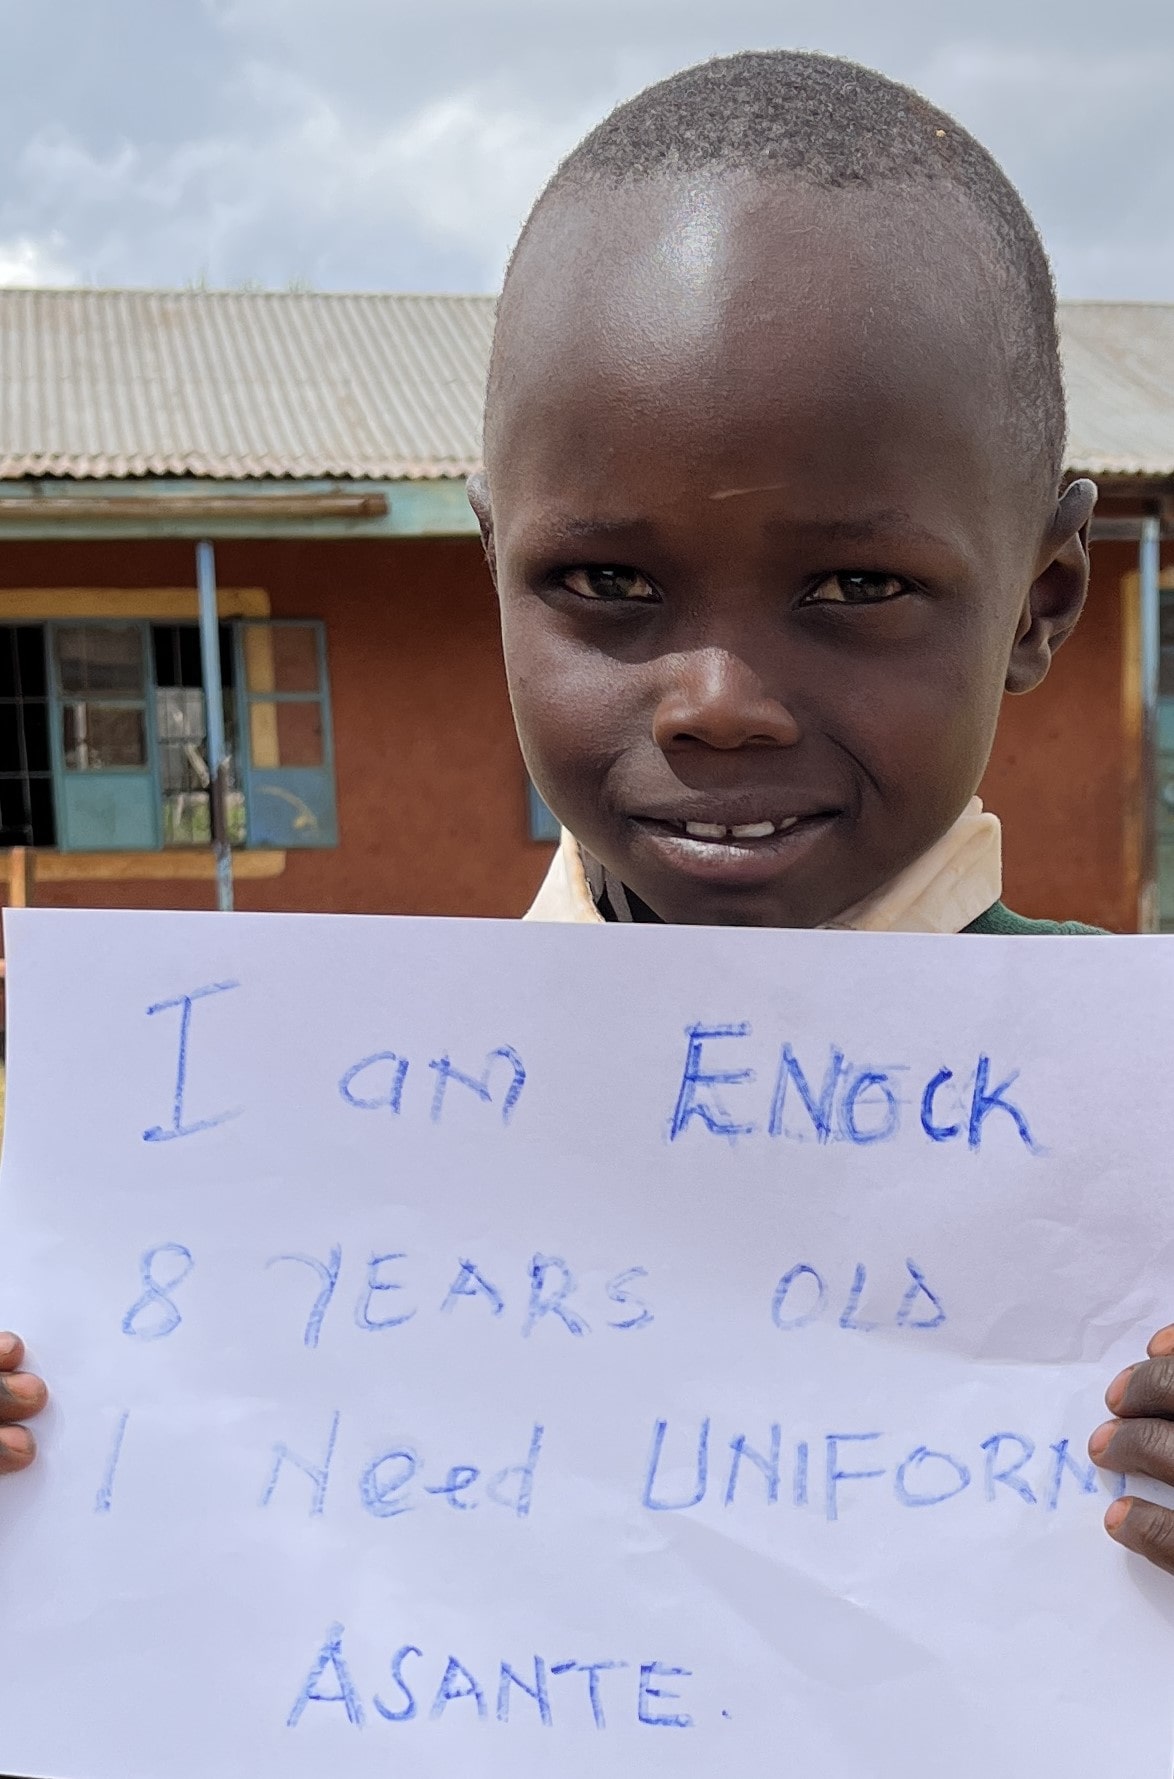 I am ENOCK
8 YEARS OLD
I Need UNIFORM
ASANTE.